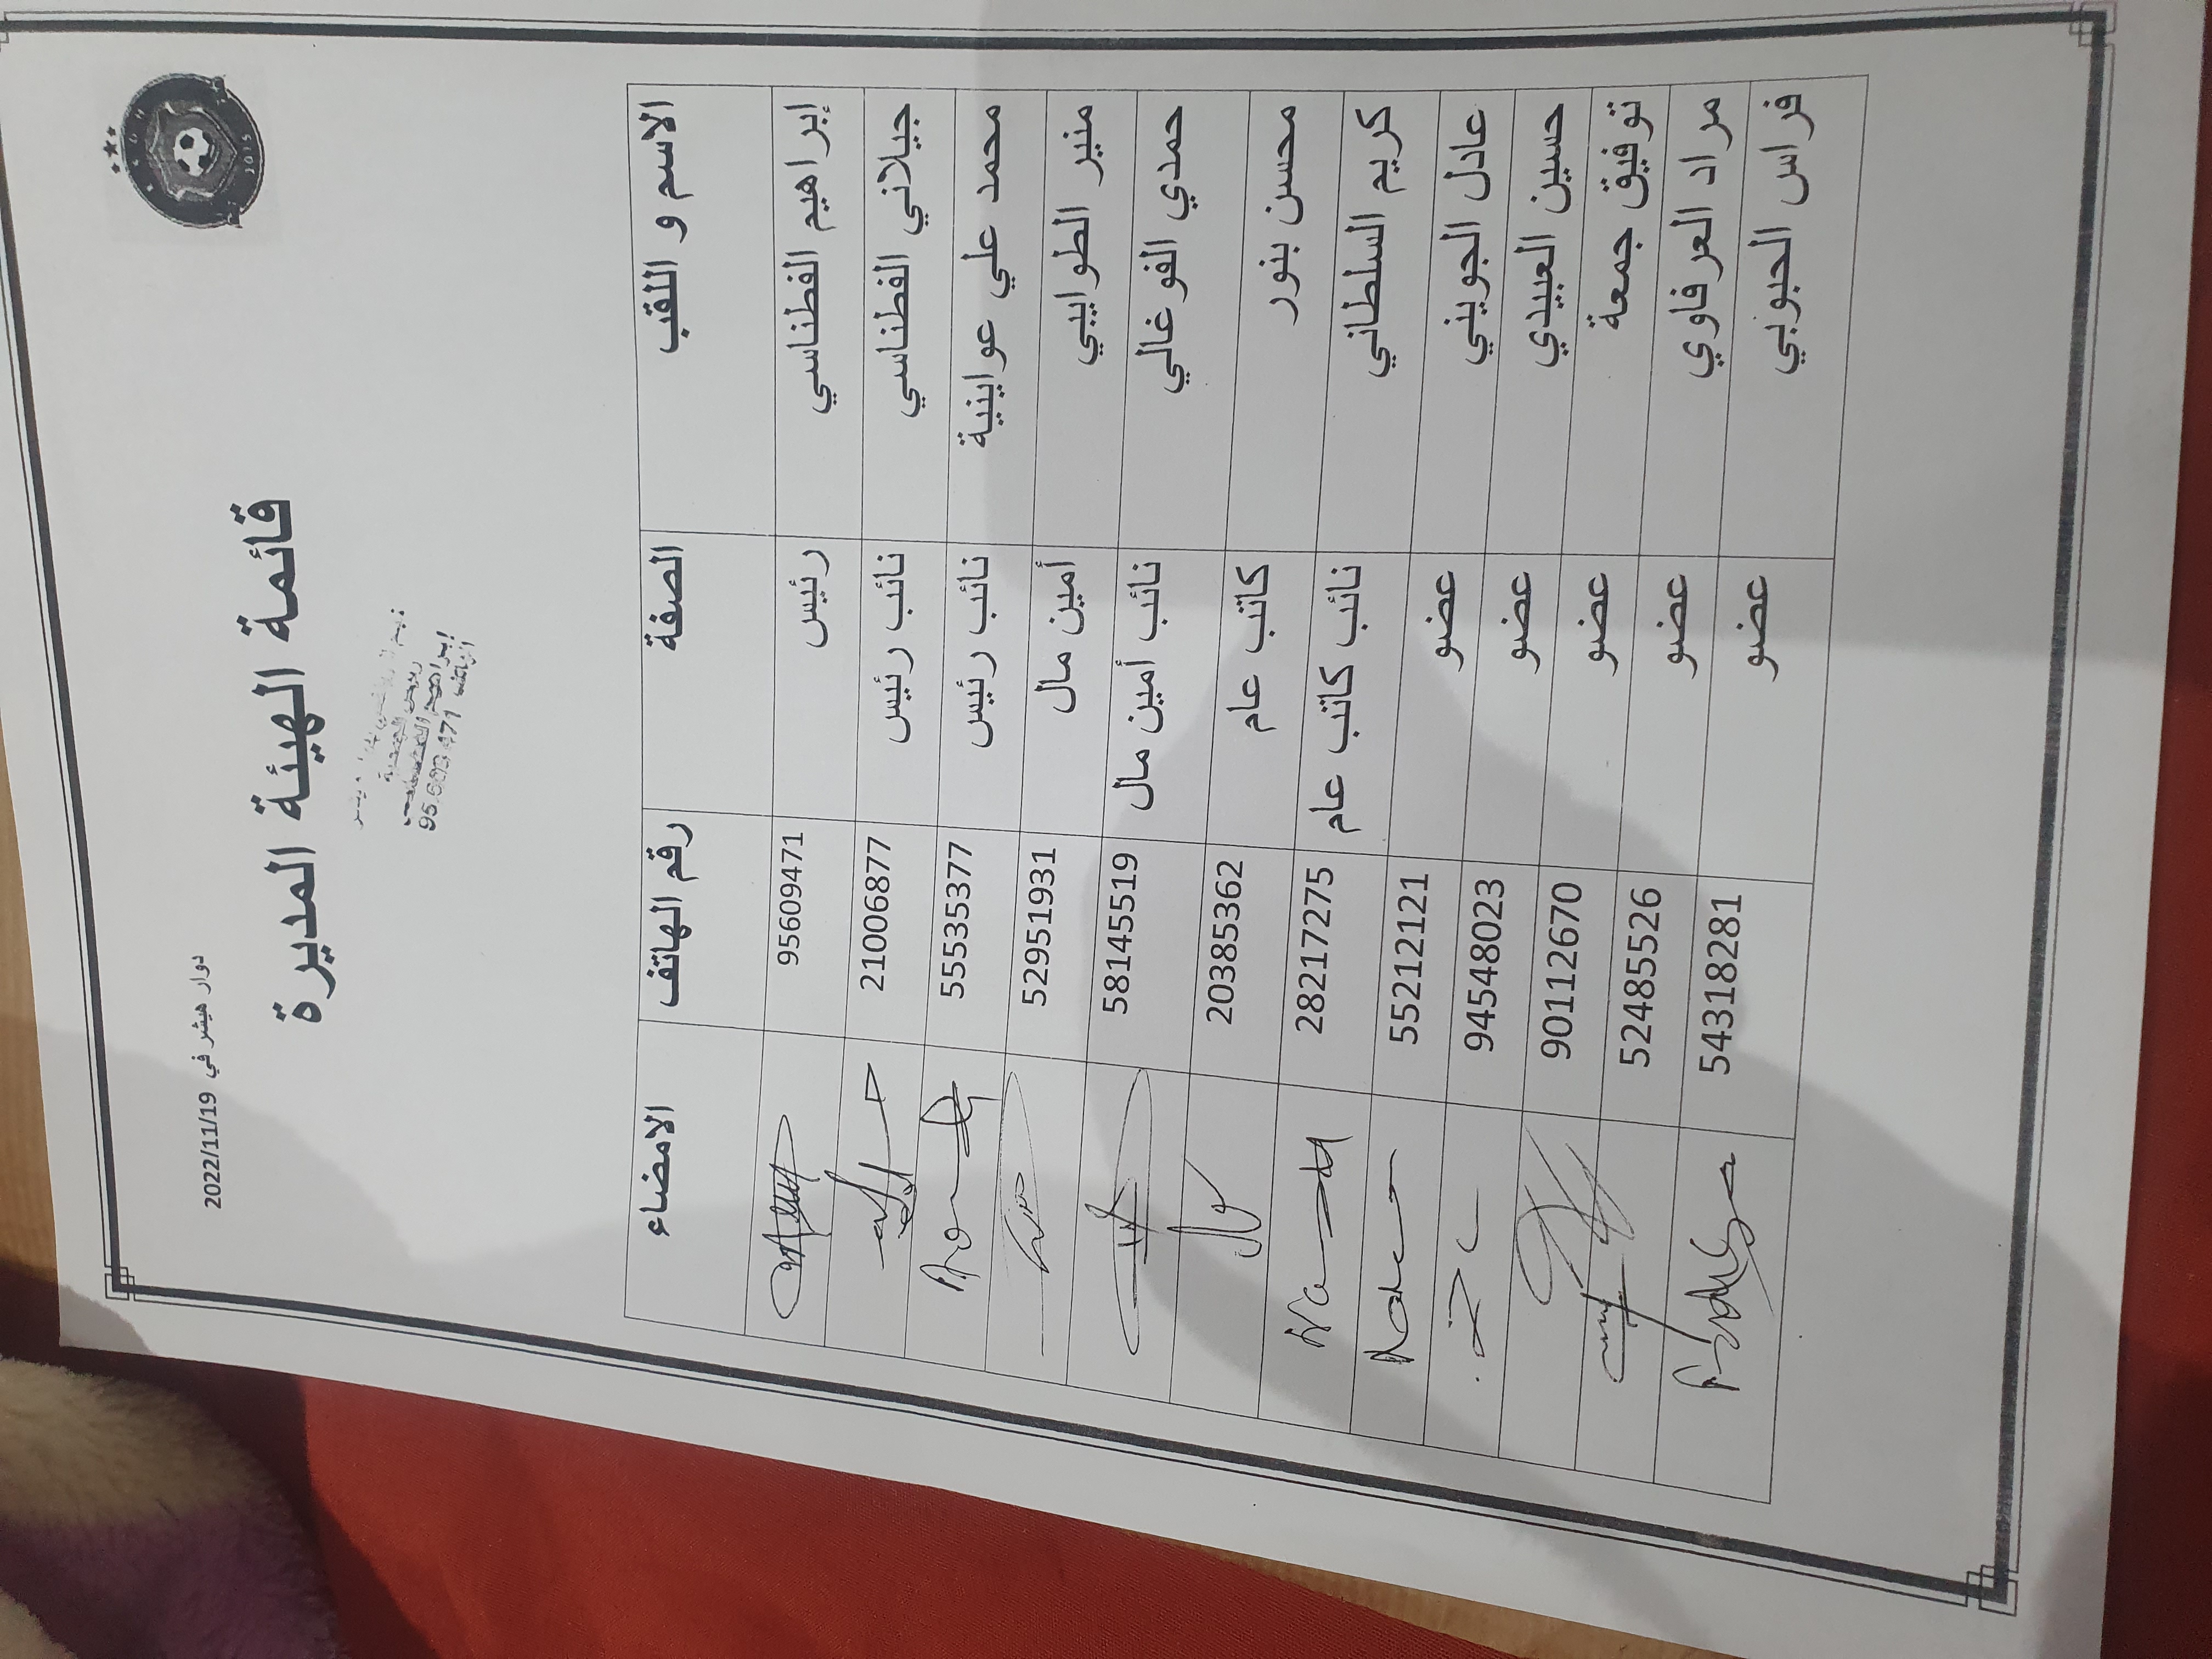 دوار هيشر في 2022/11/19
قائمة الهيئة المديرة
2015
الاسم و اللقب الصفة رقم الهاتف الامضاء
إبراهيم الفطناسي رئيس 95609471
جيلاني الفطناسي نائب رئيس 21006877
محمد علي عواينية نائب رئيس 55535377
منير الطوايبي أمين مال 52951931
حمدي الفوغالي نائب أمين مال 58145519
محسن بنور كاتب عام 20385362
كريم السلطاني نائب كاتب عام 28217275
عادل الجويني عضو 55212121
حسين العبيدي عضو 94548023
توفيق جمعة عضو 90112670
مراد العرفاوي عضو 52485526
فراس الحبوبي عضو 54318281